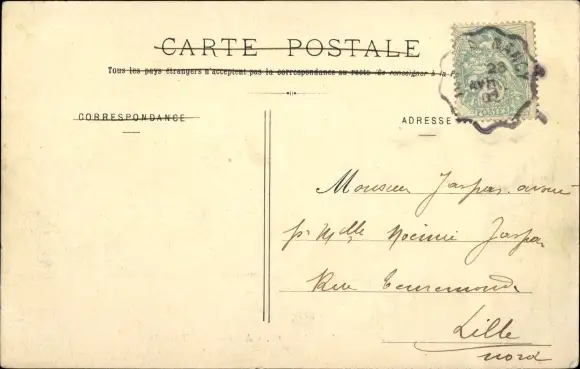 CARTE POSTALE
Tous les pays étrangers n'acceptent pas la correspondance au recto (Se renseigner à la
CORRESPONDANCE
ADRESSE
NANCY
POSTES
Monsieur Jaspar avoué
pr Mlle Noémie Jaspar
Rue
Lille
Nord